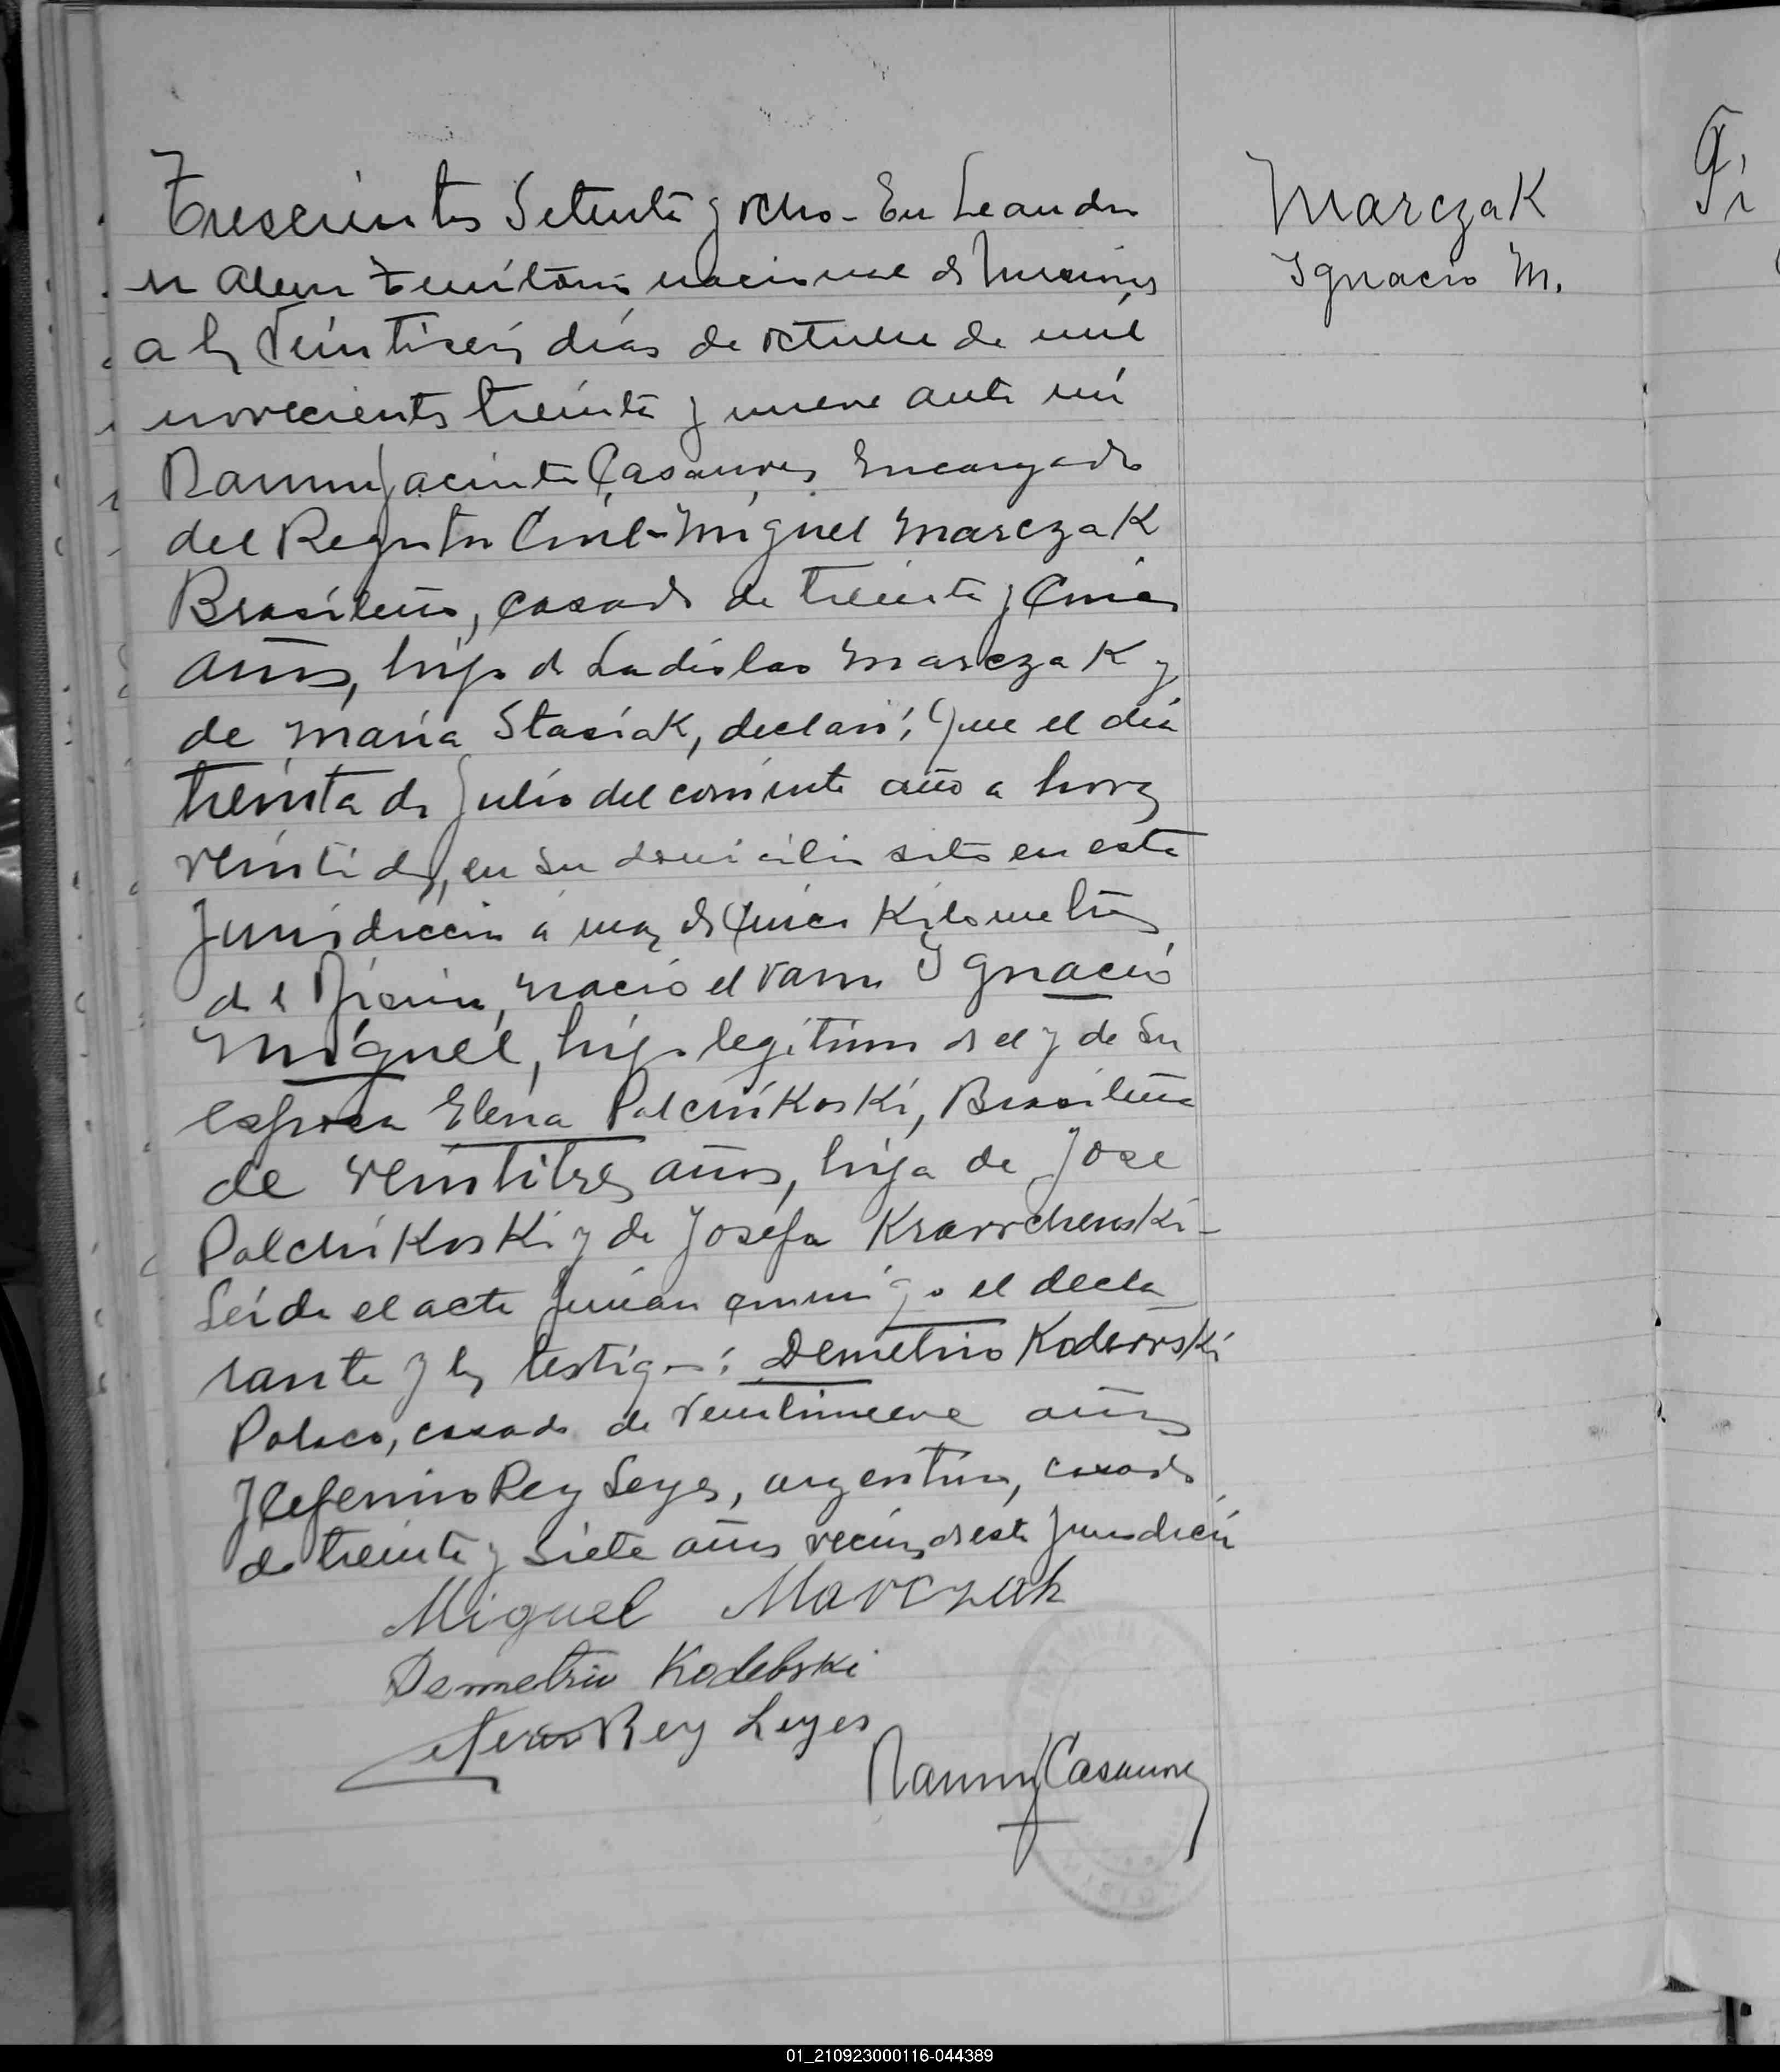 Marczak
Ignacio M.
Trescientos Setenta y ocho - En Leandro
N Alem Territorio nacional de Misiones
a los veintiseis días de octubre de mil
novecientos treinta y nueve ante mí
Ramon Jacinto Casanova Encargado
del Registro Civil - Miguel Marczak
Brasileño, casado de treinta y Cinco
años, hijo de Ladislao Marczak y
de María Stasiak, declaró; Que el día
treinta de Julio del corriente año a horas
veintidos, en su domicilio sito en esta
Jurisdiccion a mas de Cinco Kilometros
de la Oficina, nació el varon Ignacio
Miguel, hijo legítimo de el y de su
esposa Elena Palchikoski, Brasileña
de veintitres años, hija de Jose
Palchikoski y de Josefa Kravchenski -
Leida el acta firman conmigo el decla
rante y los testigos: Demetrio
Polaco, casado de veintinueve años
y Ceferino Rey Leyes, argentino, casado
de treinta y siete años vecinos de esta Jurisdicción
Miguel Marczak
Demetrio Kodebski
Rey Leyes
Ramon J Casanova
01_210923000116-044389